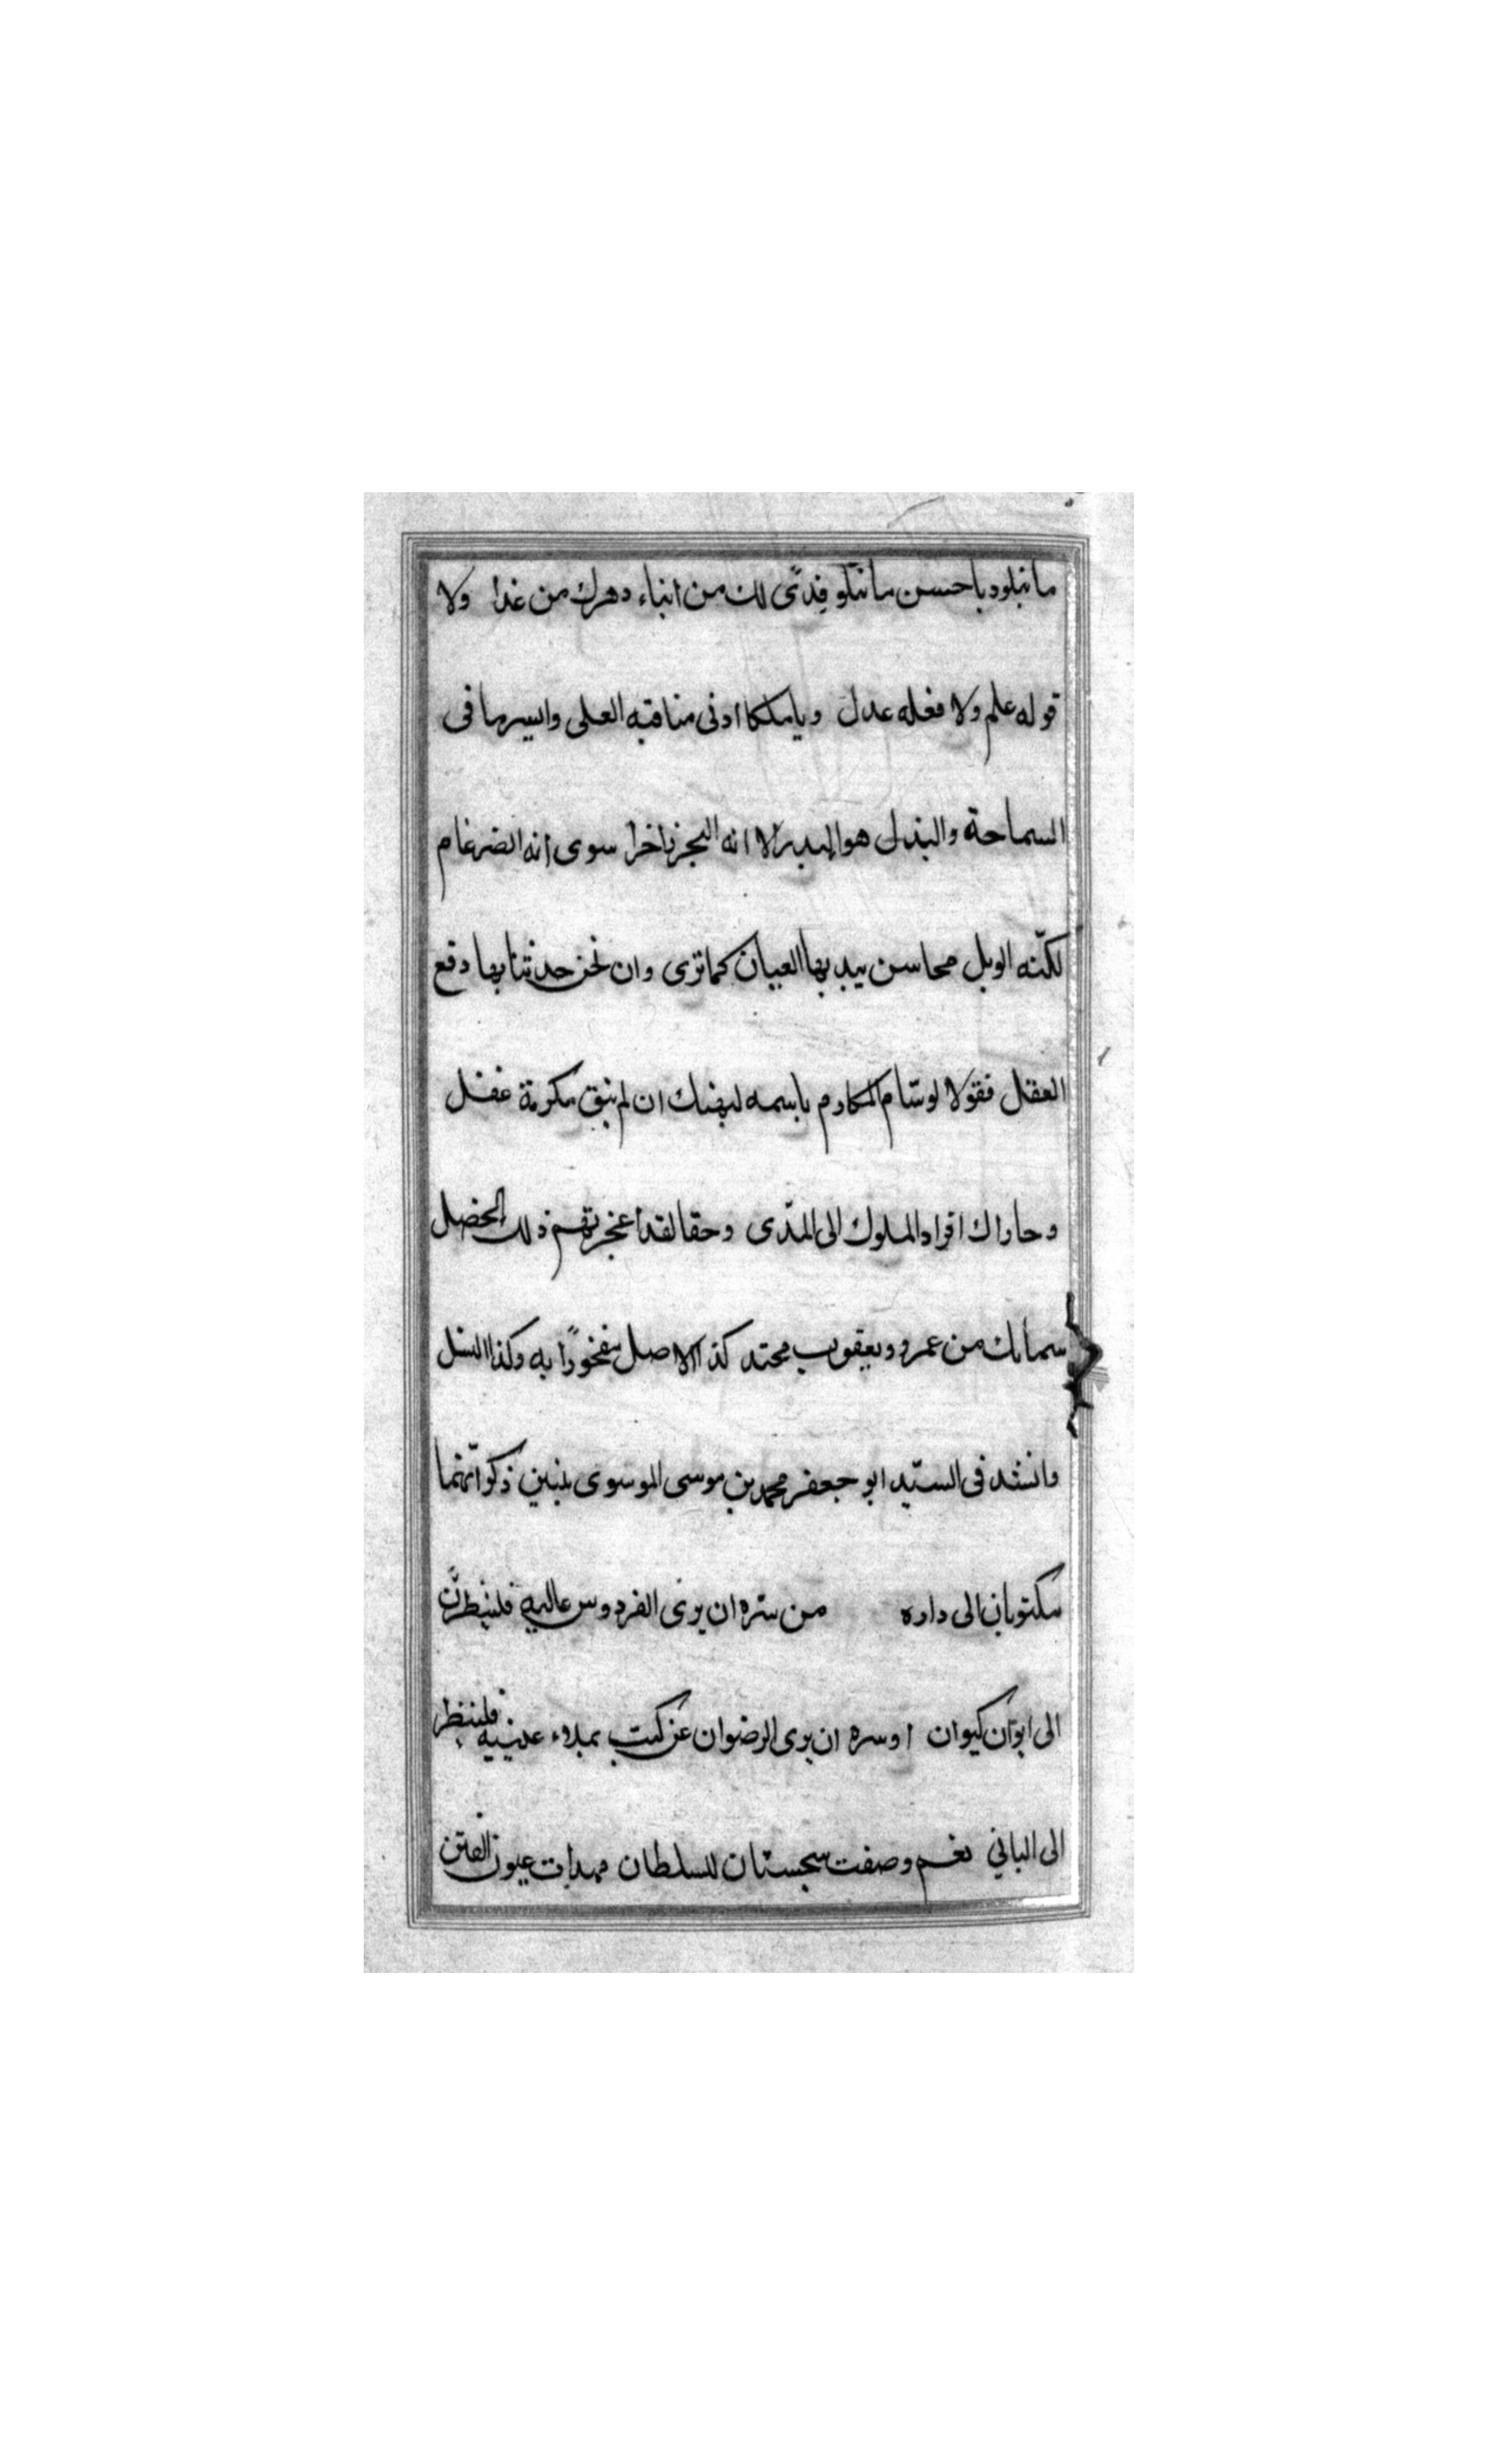 ما نبلود باحسن ما نتلو فدًى لك من ابناء دهرك من غدا ولا
قوله علم ولا فعله عدل ويا ملكا ادنى مناقبه العلى وايسر ما فى
السماحة والبذل هو البدر الا انه البحر زاخرا سوى انه الضرغام
لكنّه الوبل محاسن يبديها العيان كما ترى وان نحن حدثنا بها دفع
العقل فقولا لوسّام المكارم باسمه ليهنك ان لم تبق مكرمة غفل
وجاراك افراد الملوك الى المدى وحقا لقد اعجزتهم ذلك الخصل
سما بك من عمرو ويعقوب محتد كذا الاصل مفخورًا به وكذا النسل
وانشد فى السيّد ابو جعفر محمد بن موسى الموسوى بيتين ذكر انّهما
مكتوبان الى داره من سرّه ان يرى الفردوس عاليه فلينظرنّ
الى ايوان كيوان او سره ان يرى الرضوان عن كثب بملاء عينيه فلينظر
الى البانى نعم وصفت سجستان للسلطان مهدات عيون الفتن